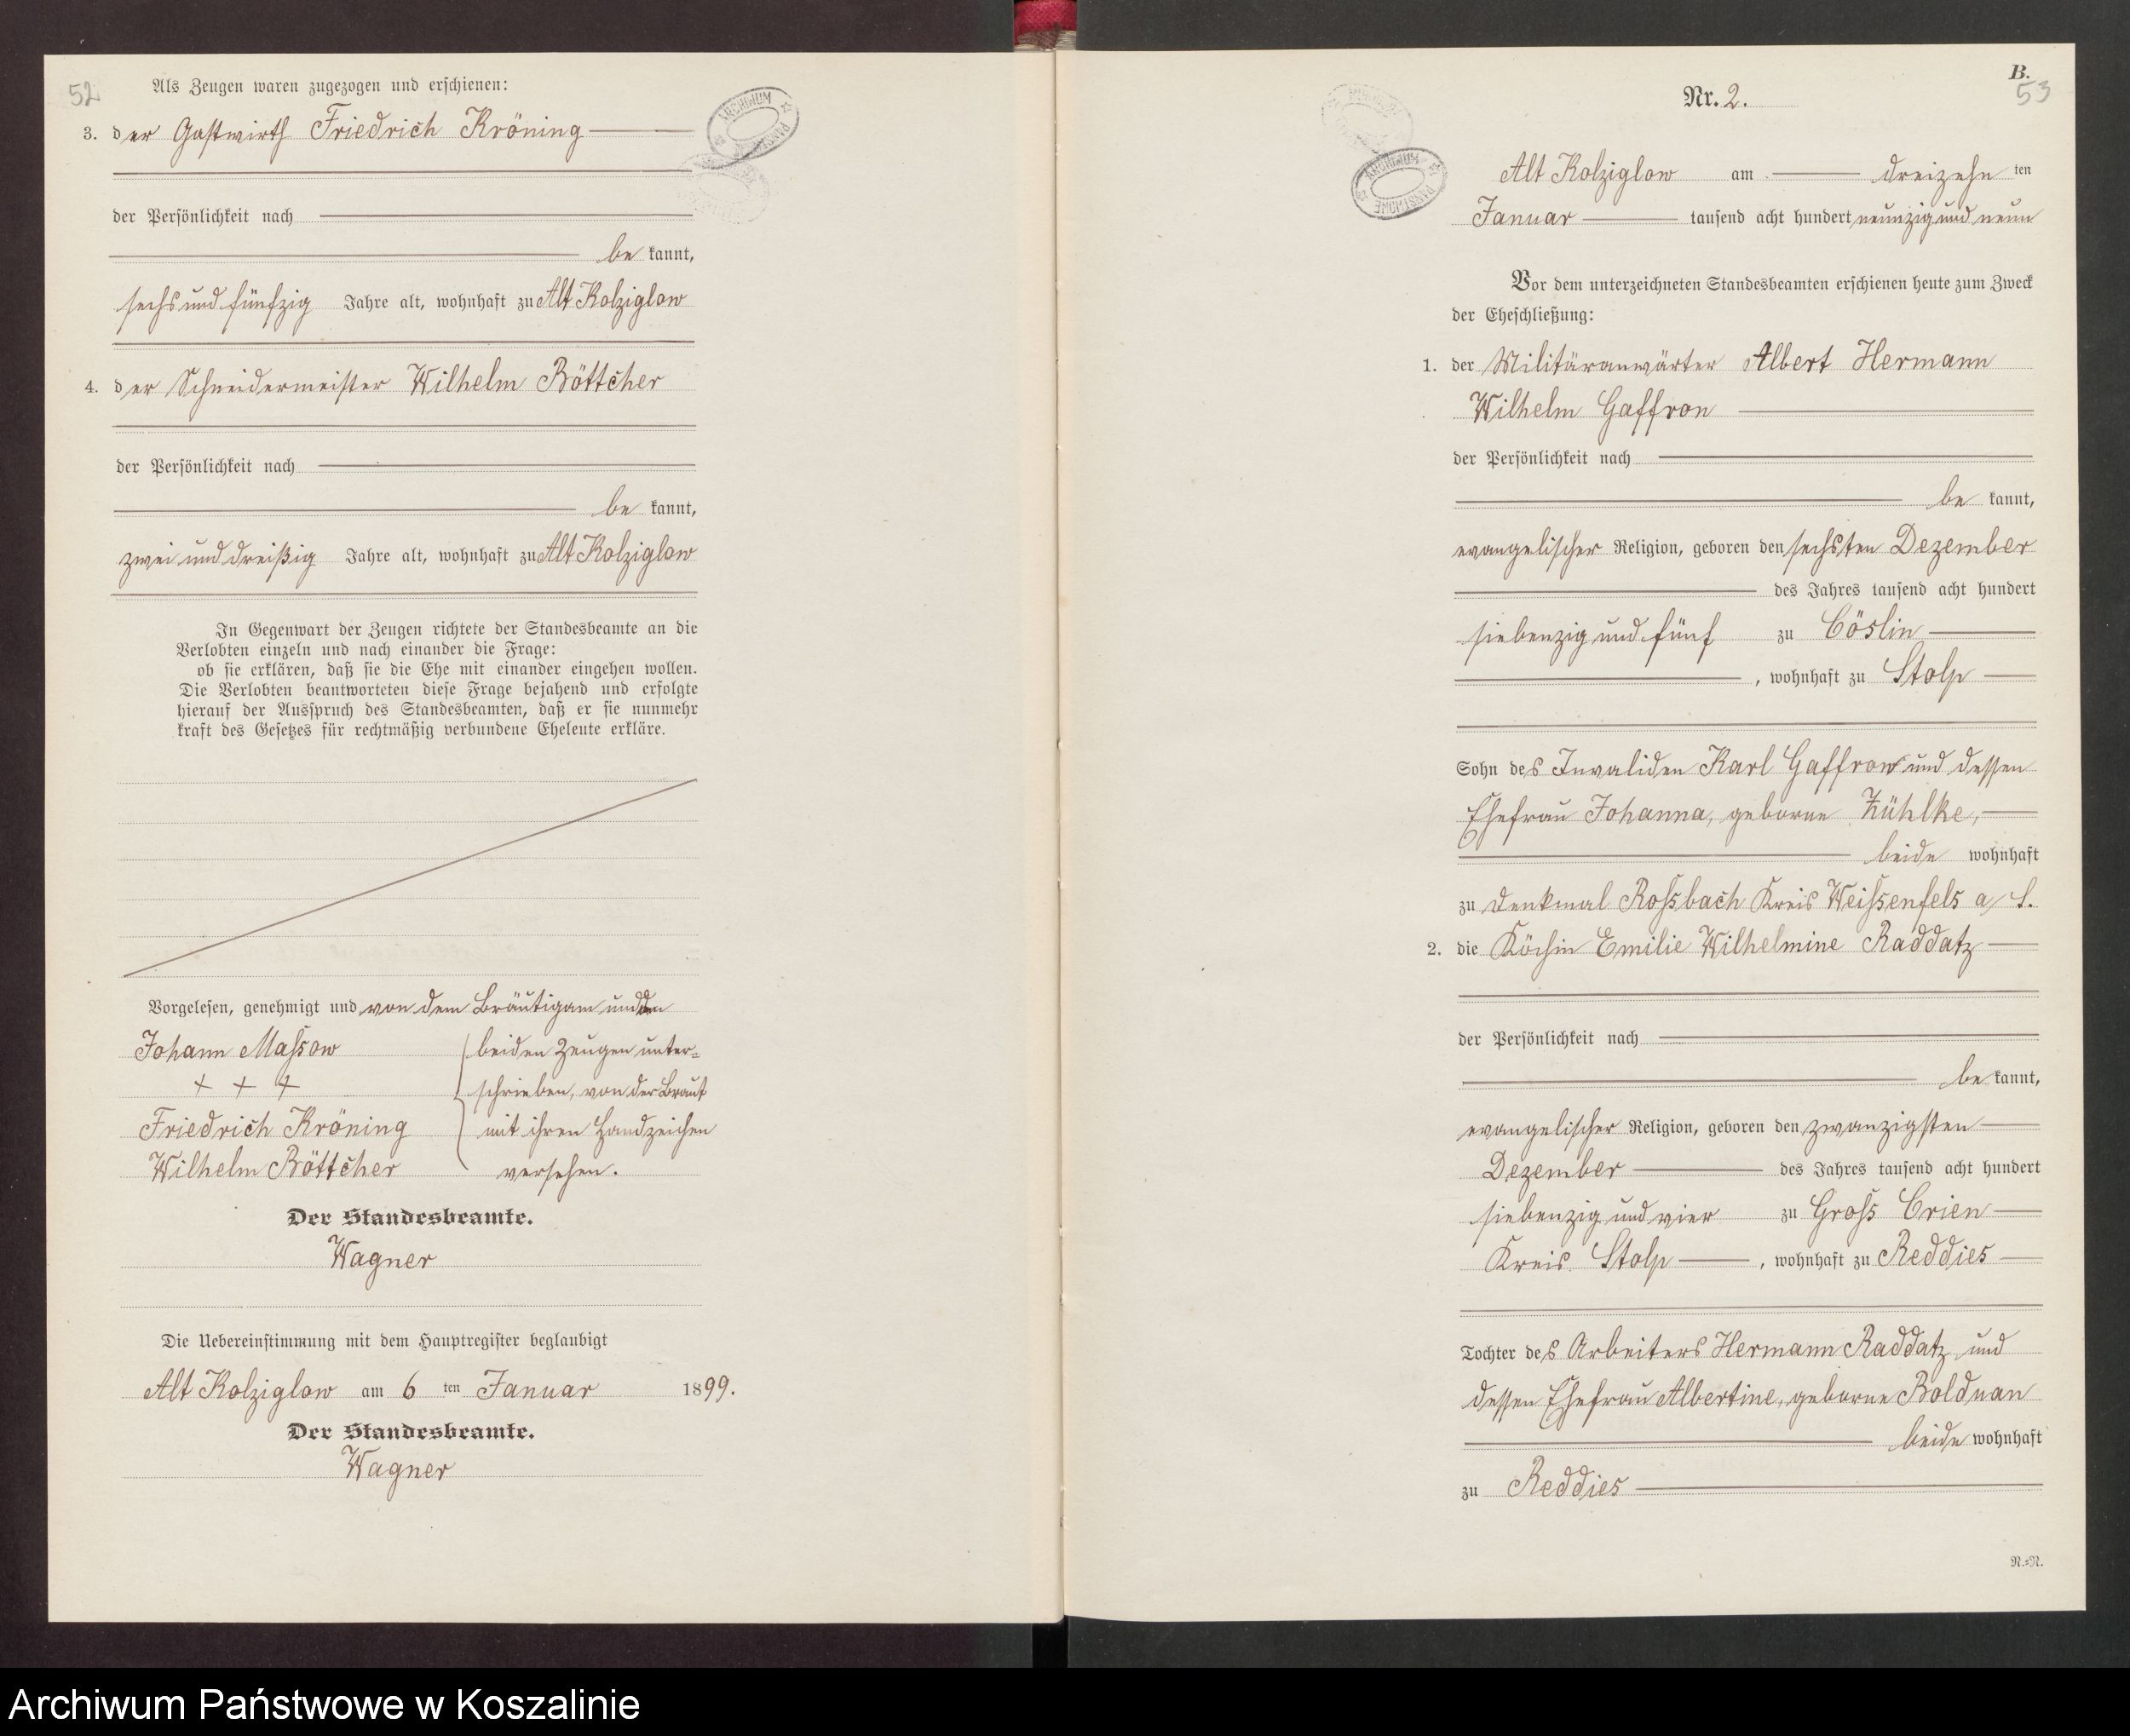 52
Als Zeugen waren zugezogen und erschienen:
3. der Gastwirth Friedrich Kröning
der Persönlichkeit nach
be kannt,
sechs und fünfzig Jahre alt, wohnhaft zu Alt Kolziglow
4. der Schneidermeister Wilhelm Böttcher
der Persönlichkeit nach
be kannt,
zwei und dreißig Jahre alt, wohnhaft zu Alt Kolziglow
In Gegenwart der Zeugen richtete der Standesbeamte an die
Verlobten einzeln und nach einander die Frage:
ob sie erklären, daß sie die Ehe mit einander eingehen wollen.
Die Verlobten beantworteten diese Frage bejahend und erfolgte
hierauf der Ausspruch des Standesbeamten, daß er sie nunmehr
kraft des Gesetzes für rechtmäßig verbundene Eheleute erkläre.
Vorgelesen, genehmigt und von dem Bräutigam und den
Johann Massow beiden Zeugen unter=
+ + + schrieben, von der Braut
Friedrich Kröning mit ihren Handzeichen
Wilhelm Böttcher versehen.
Der Standesbeamte.
Wagner
Die Uebereinstimmung mit dem Hauptregister beglaubigt
Alt Kolziglow am 6 ten Januar 1899.
Der Standesbeamte.
Wagner
ARCHIWUM PAŃSTWOWE
B.
53
Nr. 2.
ARCHIWUM PAŃSTWOWE
Alt Kolziglow am dreizehn ten
Januar tausend acht hundert neunzig und neun
Vor dem unterzeichneten Standesbeamten erschienen heute zum Zweck
der Eheschließung:
1. der Militäranwärter Albert Hermann
Wilhelm Gaffron
der Persönlichkeit nach
be kannt,
evangelischer Religion, geboren den sechsten Dezember
des Jahres tausend acht hundert
siebenzig und fünf zu Cöslin
, wohnhaft zu Stolp
Sohn des Invaliden Karl Gaffron und dessen
Ehefrau Johanna, geborne Zühlke,
beide wohnhaft
zu Denkmal Rossbach Kreis Weissenfels a/S.
2. die Köchin Emilie Wilhelmine Raddatz
der Persönlichkeit nach
be kannt,
evangelischer Religion, geboren den zwanzigsten
Dezember des Jahres tausend acht hundert
siebenzig und vier zu Gross Crien
Kreis Stolp, wohnhaft zu Reddies
Tochter des Arbeiters Hermann Raddatz und
dessen Ehefrau Albertine, geborne Bolduan
beide wohnhaft
zu Reddies
N.=N.
Archiwum Państwowe w Koszalinie